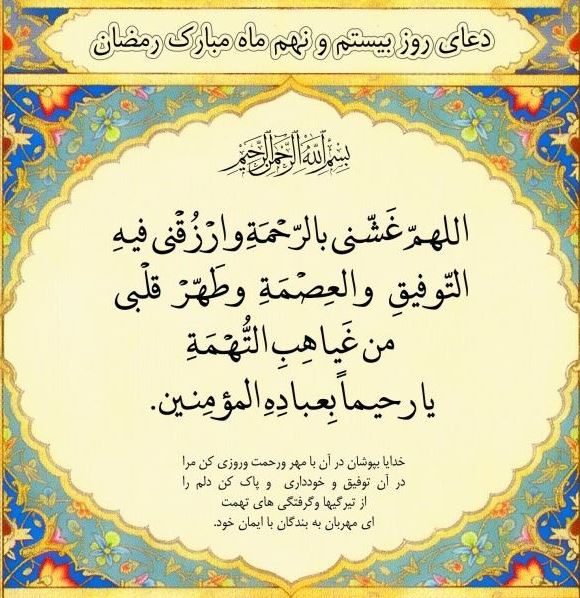 دعای روز بیستم و نهم ماه مبارک رمضان
بسم الله الرحمن الرحیم
اللهمّ غَشّنی بالرّحْمَةِ وارْزُقْنی فیهِ
التّوفیقِ والعِصْمَةِ وطَهّرْ قلْبی
من غَیاهِبِ التُّهْمَةِ
یارحیماً بِعبادِهِ المؤمِنین.
خدایا بپوشان در آن با مهر ورحمت وروزی کن مرا
در آن توفیق و خودداری و پاک کن دلم را
از تیرگیها وگرفتگی های تهمت
ای مهربان به بندگان با ایمان خود.